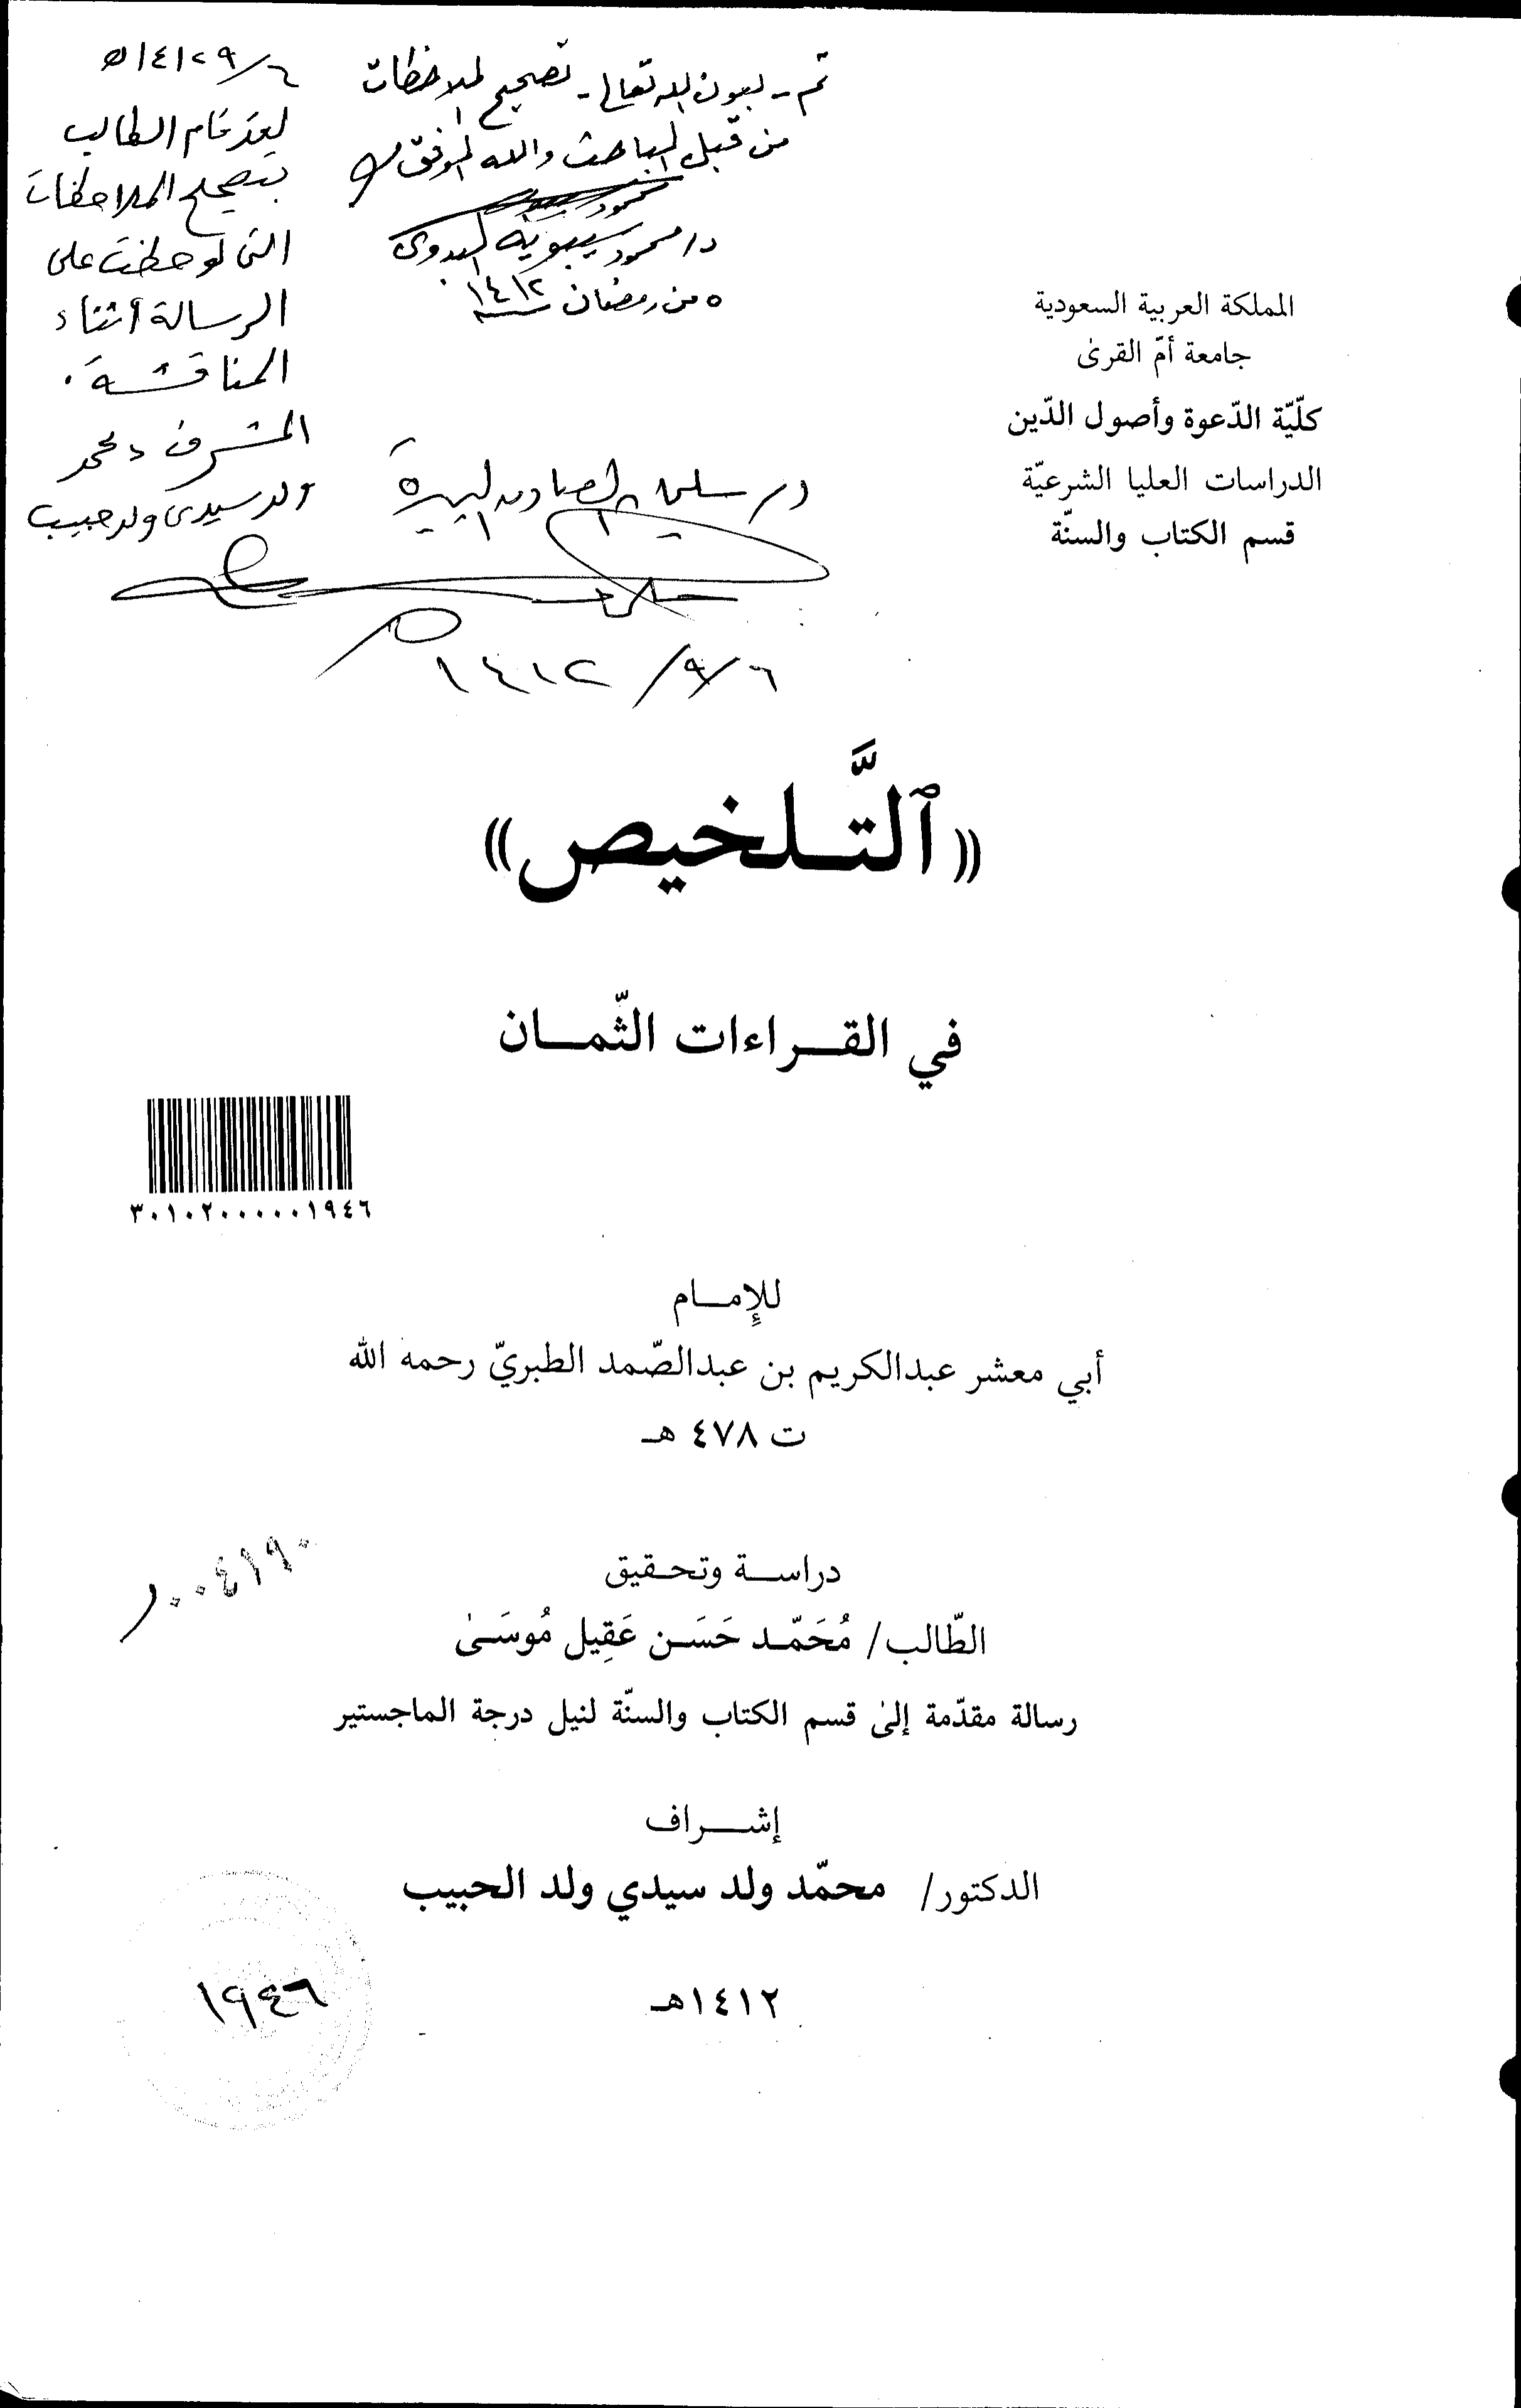 تم - بعون الله تعالى - تصحيح الملاحظات
من قبل الباحث والله الموفق
محمود
د/ محمود سيبويه البدوي
٥ من رمضان ١٤١٢
٦/٩/١٤١٢هـ
لقد قام الطالب
بتصحيح الملاحظات
التي لوحظت على
الرسالة أثناء
المناقشة .
المشرف د محمد
ولد سيدي ولد حبيب
المملكة العربية السعودية
جامعة أمّ القرىٰ
كلّيّة الدّعوة وأصول الدّين
الدراسات العليا الشرعيّة
قسم الكتاب والسنّة
د/ سليمان الصادق البيرة
٦/٩/١٤١٢
«ٱلتَّلخيص»
في القراءات الثّمان
٣٠١٠٢٠٠٠٠٠١٩٤٦
للإمام
أبي معشر عبدالكريم بن عبدالصّمد الطبريّ رحمه الله
ت ٤٧٨ هـ
دراسة وتحقيق
الطّالب/ مُحَمّد حَسَن عَقِيل مُوسَىٰ
رسالة مقدّمة إلىٰ قسم الكتاب والسنّة لنيل درجة الماجستير
إشراف
الدكتور/ محمّد ولد سيدي ولد الحبيب
١٩٤٦
١٤١٢هـ